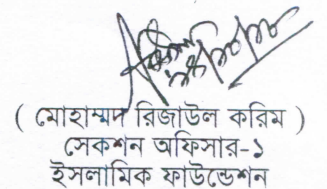 ( মোহাম্মদ রিজাউল করিম )
সেকশন অফিসার-১
ইসলামিক ফাউন্ডেশন